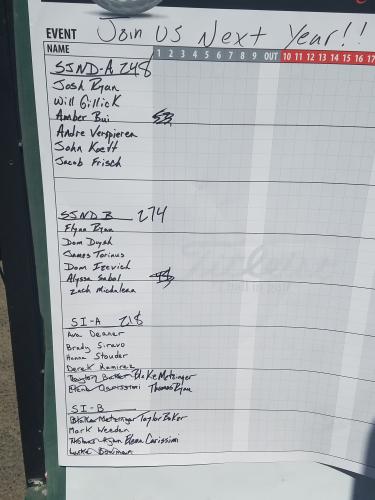 EVENT Join Us Next Year!!
NAME 1 2 3 4 5 6 7 8 9 OUT 10 11 12 13 14 15 16 17
SJND-A 248
Josh Ryan
Will Gillick
Amber Bui
Andre Verspieren
John Koett
Jacob Frisch
SJND B 274
Flynn Ryan
Dom Duyah
James Torinus
Dom Izevich
Alyssa Sabol
Zach Micdalena
Titleist
SI-A 218
Ava Deaner
Brady Siravo
Hanna Stouder
Derek Ramirez
Taylor Baker Blake Metzinger
Elena Carissimi Thomas Ryan
SI-B
Blake Metzinger Taylor Baker
Mark Weeden
Thomas Ryan Elena Carissimi
Luke Bowman